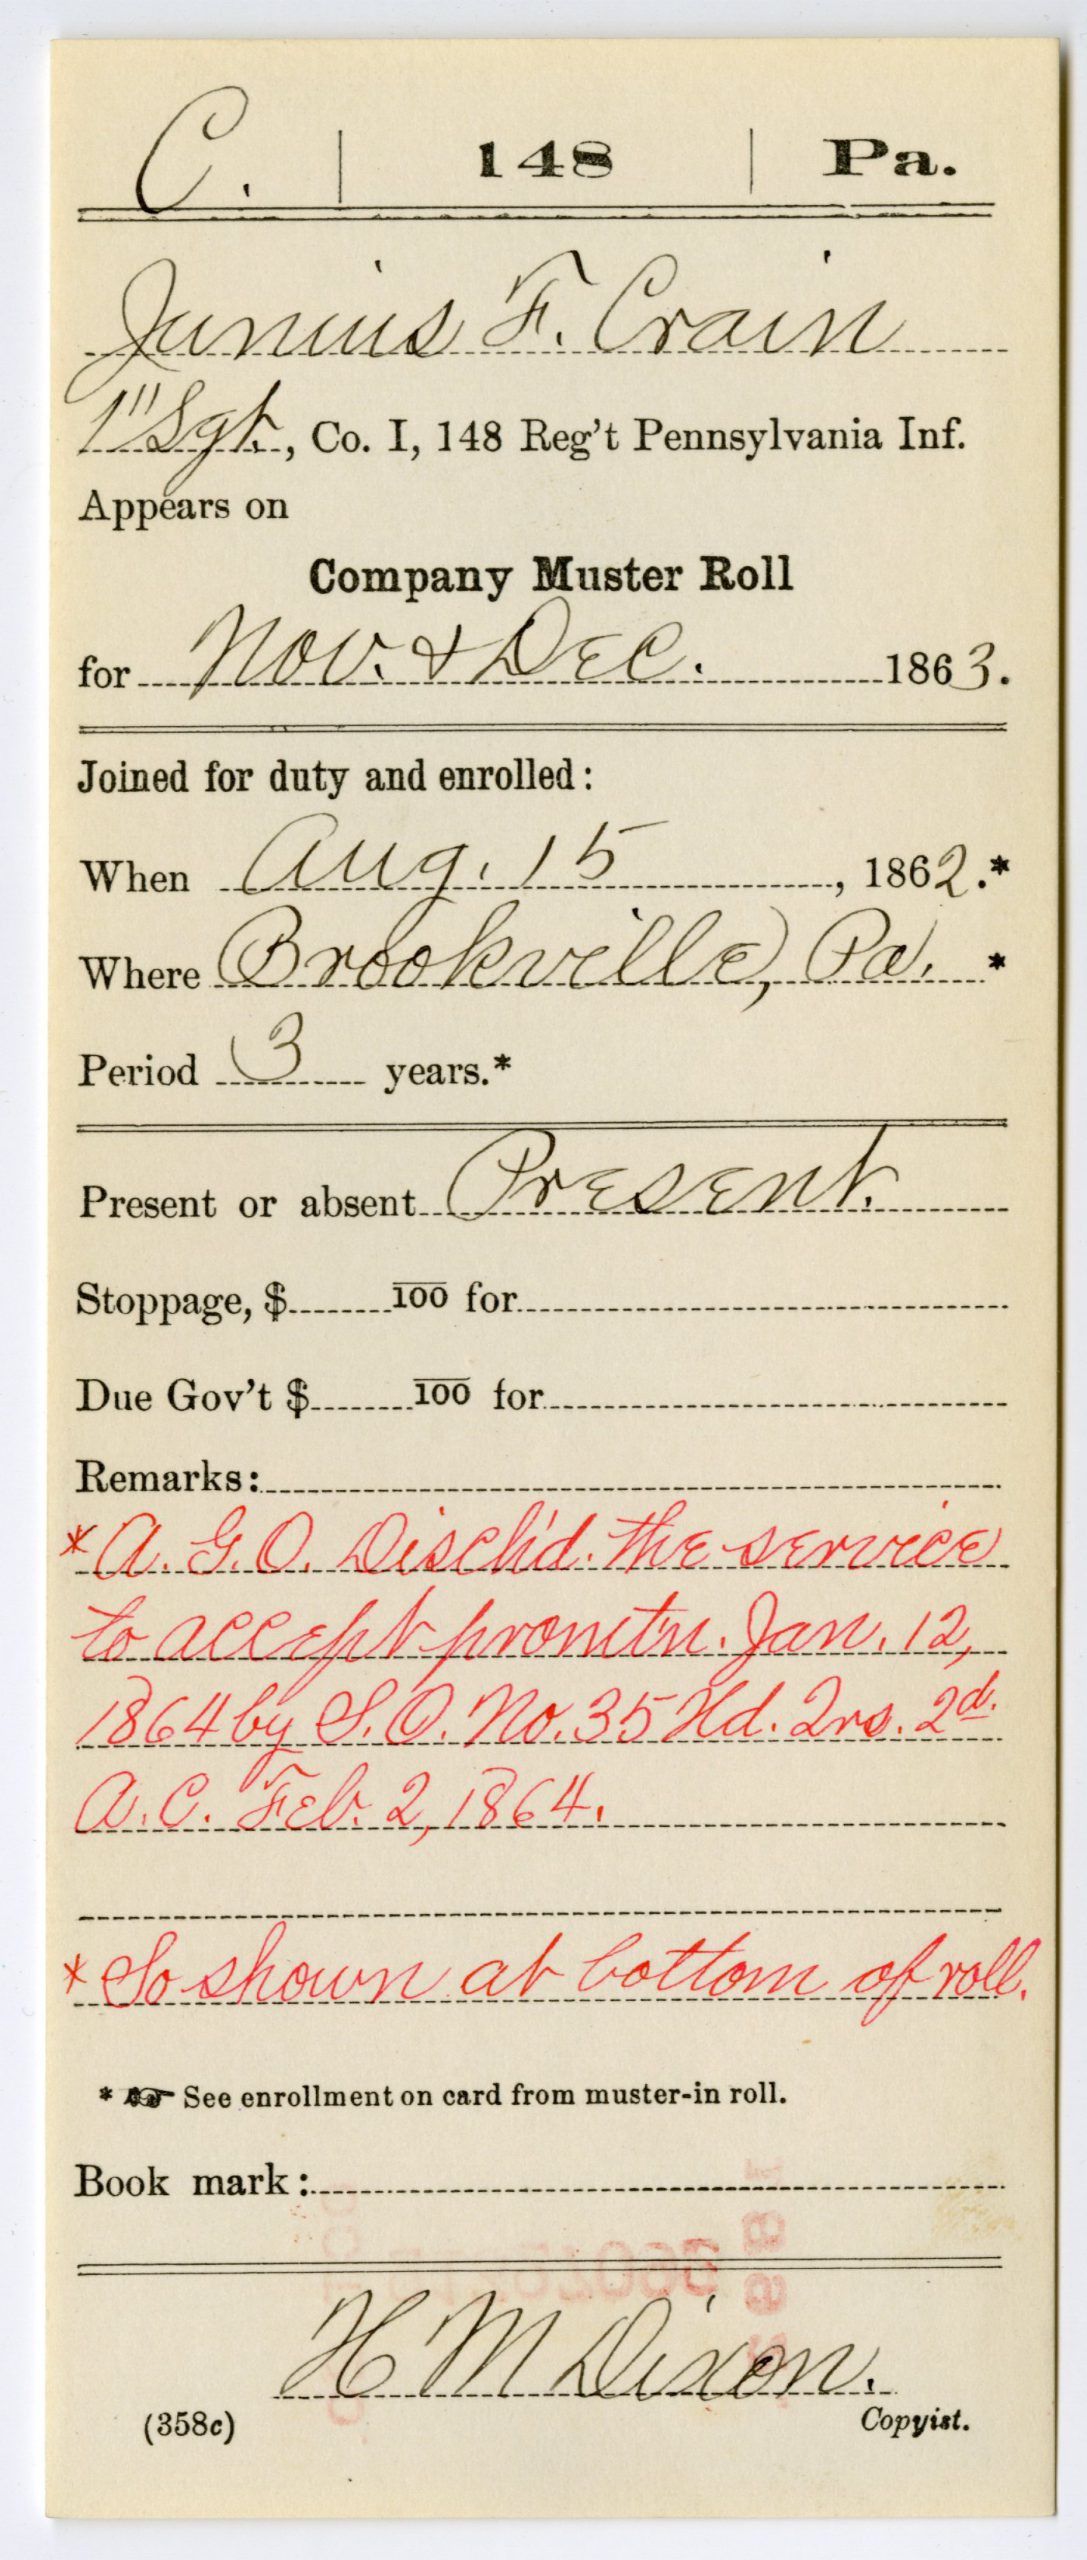 C. | 148 | Pa.
Junius F. Crain
1" Sgt., Co. I, 148 Reg't Pennsylvania Inf.
Appears on
Company Muster Roll
for Nov. & Dec. 1863.
Joined for duty and enrolled:
When Aug. 15, 1862.*
Where Brookville, Pa. *
Period 3 years.*
Present or absent Present.
Stoppage, $ 100 for
Due Gov't $ 100 for
Remarks:
* A. G. O. Disch'd. the service
to accept promtn. Jan. 12,
1864 by S. O. No. 35 Hd. Qrs. 2d.
A. C. Feb. 2, 1864.
* So shown at bottom of roll.
* ☞ See enrollment on card from muster-in roll.
Book mark:
H M Dixon.
(358c) Copyist.